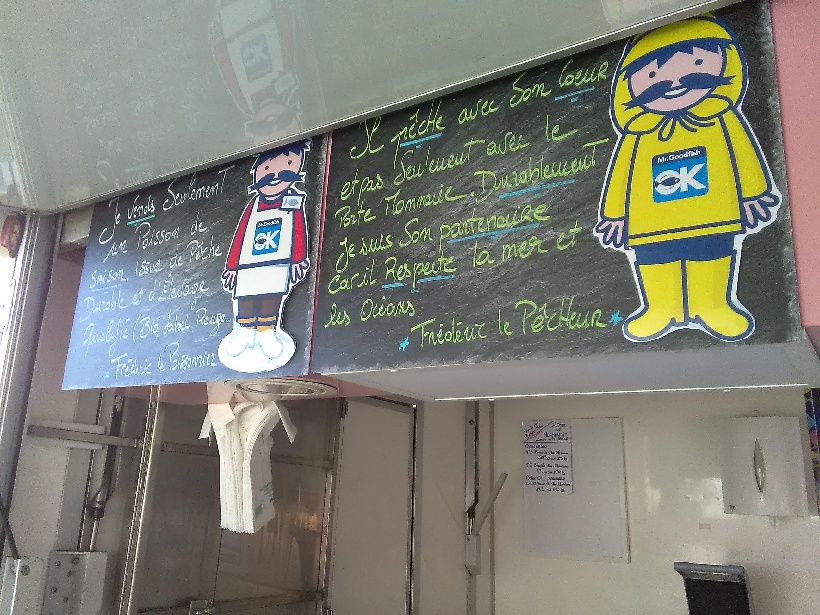 Je vends Seulement
un Poisson de
saison issue de Pêche
Durable et d'Elevage
Qualifié (Bio label Rouge
Frédéric le Poissonnier
Mr.Goodfish
OK
Il pêche avec Son Coeur
et pas Seulement avec le
Porte Monnaie. Durablement
Je suis Son partenaire
car il Respecte la mer et
les Océans
* Frédéric le PêcHeur *
Mr.Goodfish
OK
OK